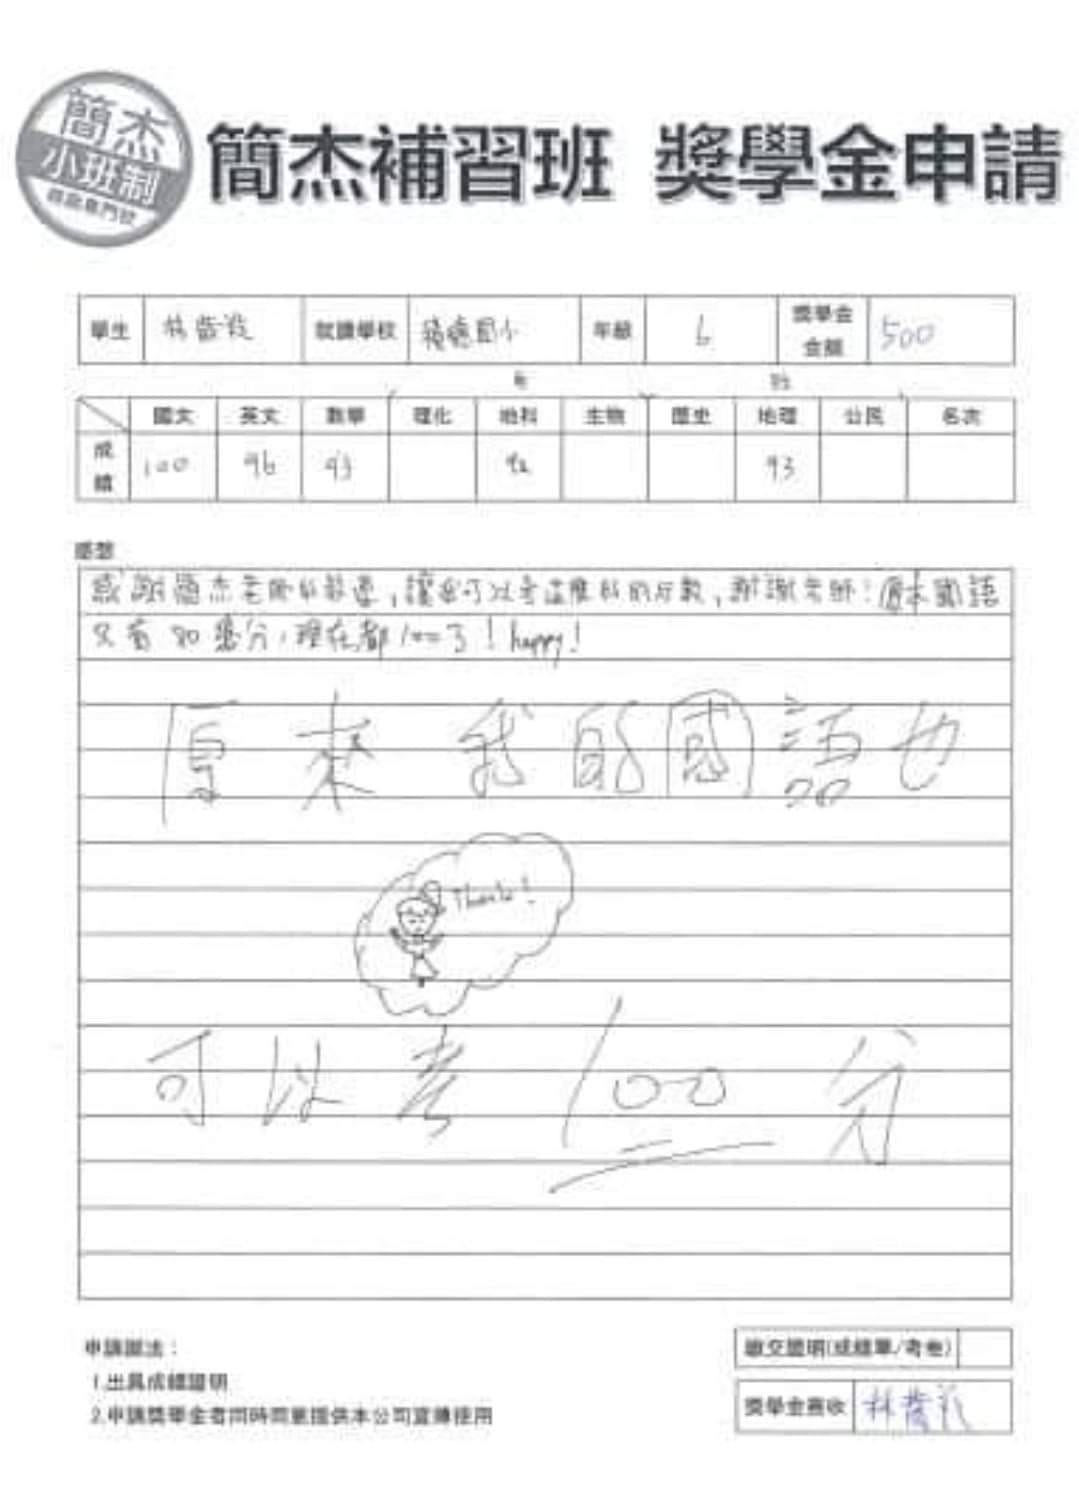 簡杰
小班制
簡杰補習班 獎學金申請
學生 林 就讀學校 國小 年級 6 獎學金金額 500
自 社
國文 英文 數學 理化 地科 生物 歷史 地理 公民 名次
成績 100 96 93 92 93
感想
感謝簡杰老師的教導,讓我可以考這麼好的分數,謝謝老師!原本國語
只有90幾分,現在都100了!happy!
原來我的國語也
Thanks!
可以考100分
申請辦法:
繳交證明(成績單/考卷)
1.出具成績證明
2.申請獎學金者同時同意提供本公司宣傳使用
獎學金簽收 林